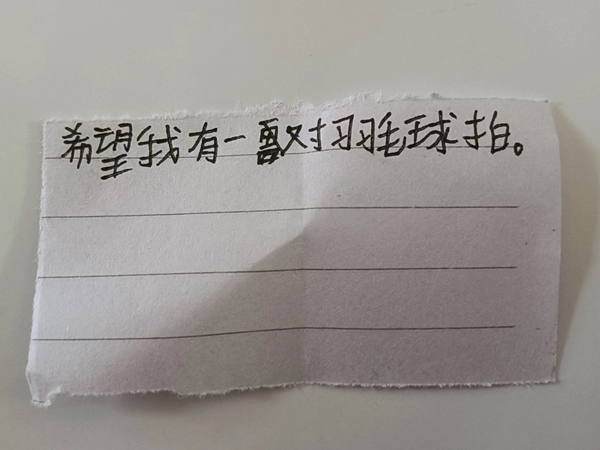 希望我有一对羽毛球拍。